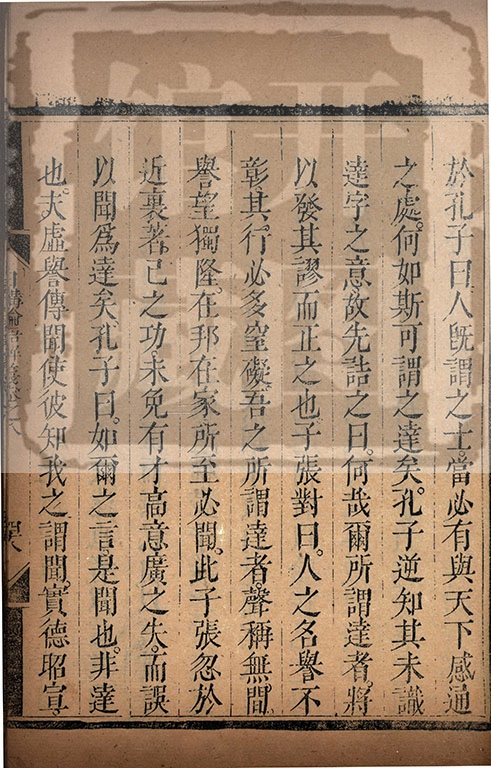 於孔子曰人旣謂之士當必有與天下感通
之處何如斯可謂之達矣孔子逆知其未識
達字之意故先詰之曰何哉爾所謂達者將
以發其謬而正之也子張對曰人之名譽不
彰其行必多窒礙吾之所謂達者聲稱無間
譽望獨隆在邦在家所至必聞此子張忽於
近裏著己之功未免有才高意廣之失而誤
以聞爲達矣孔子曰如爾之言是聞也非達
也夫虛譽傳聞使彼知我之謂聞實德昭宣